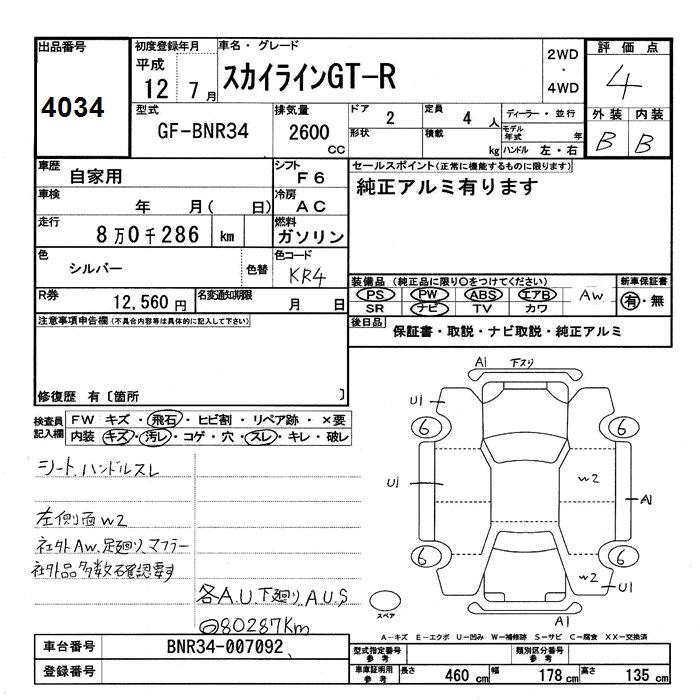 出品番号 初度登録年月 車名・グレード 2WD・4WD 評価点
4034 平成 12 7月 スカイラインGT-R 4
型式 排気量 ドア 2 定員 4人 ディーラー・並行 外装 内装
GF-BNR34 2600cc 形状 積載 kg モデル年式 年 B B
ハンドル 左・右
車歴 自家用 シフト F6 セールスポイント(正常に機能するものに限ります)
車検 年 月( 日) 冷房 AC 純正アルミ有ります
走行 8万0千286 km 燃料 ガソリン
色 シルバー 色替 色コード KR4
装備品(純正品に限り○をつけてください) 新車保証書
R券 12,560円 名変通知期限 月 日 PS PW ABS エアB AW 有・無
SR ナビ TV カワ
注意事項申告欄(不具合内容等は具体的に記入して下さい) 後日品 保証書・取説・ナビ取説・純正アルミ
修復歴 有〔箇所 〕
検査員記入欄 FW キズ・飛石・ヒビ割・リペア跡・×要
内装 キズ・汚レ・コゲ・穴・スレ・キレ・破レ
シート、ハンドルスレ
左側面W2
社外AW、足廻り、マフラー
社外品多数有確認要す
各A.U.下廻り、A.U.S
◎80287Km
A1 下スリ
U1
6 6
U1 W2 A1
6 6
W2 U1
A1
スペア
A-キズ E-エクボ U-凹み W-補修跡 S-サビ C-腐食 XX-交換済
車台番号 BNR34-007092 型式指定番号 参考 類別区分番号 参考
登録番号 車庫証明用 参考 長さ 460cm 幅 178cm 高さ 135cm